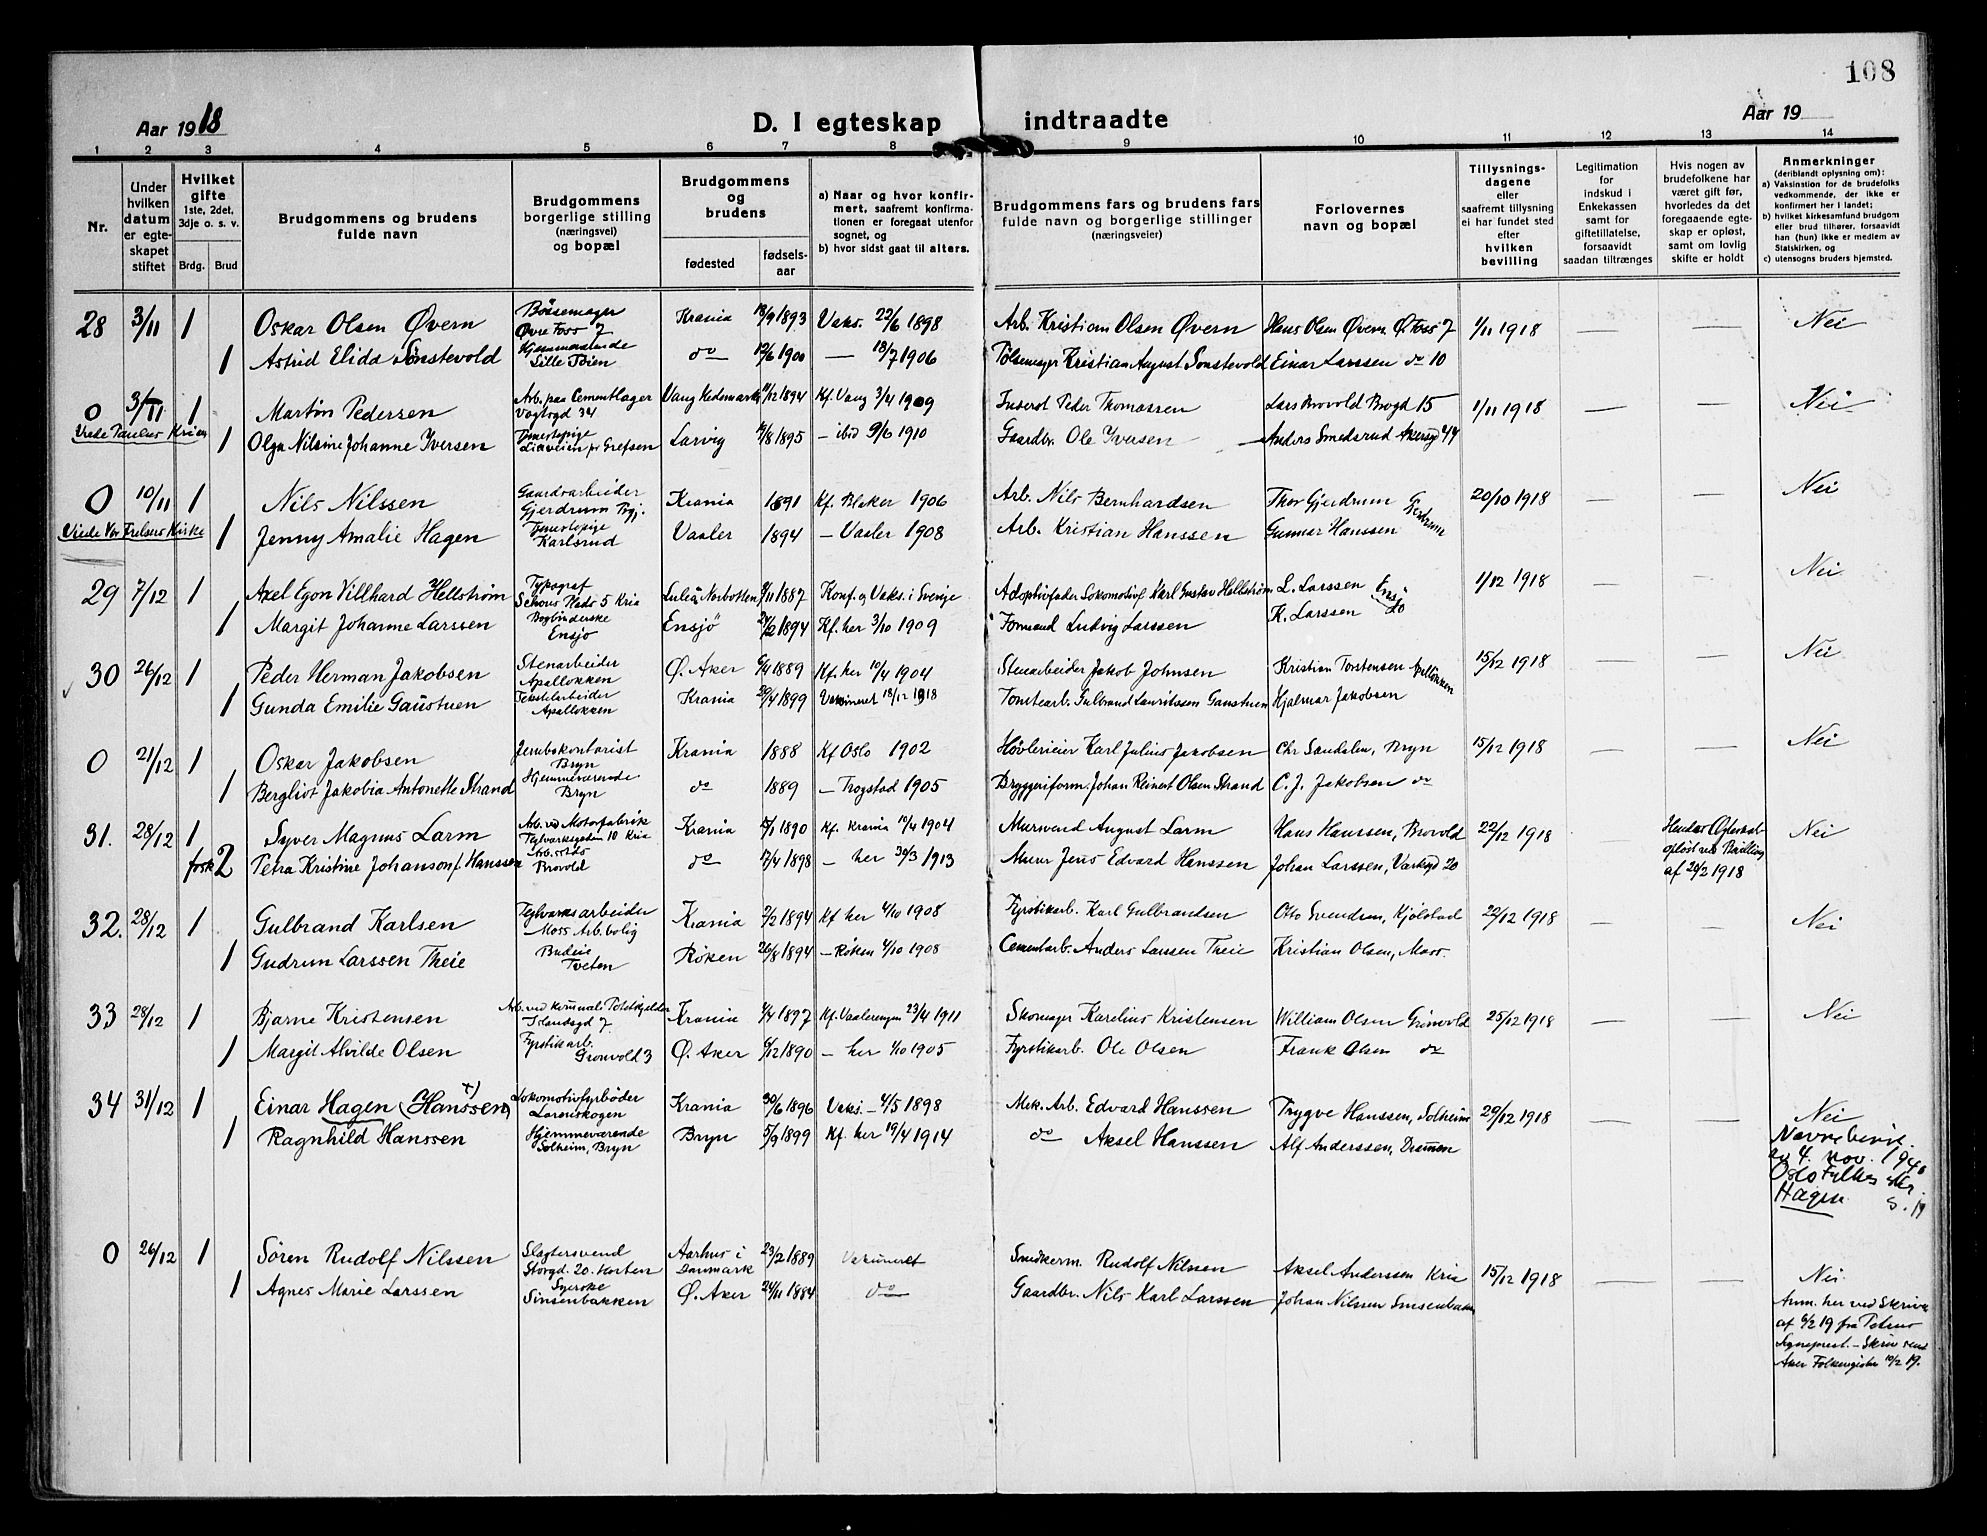 108
Aar 1918
D. I egteskap indtraadte
Aar 19
1 2 3 4 5 6 7 8 9 10 11 12 13 14
Nr.
Under hvilken datum er egteskapet stiftet
Hvilket gifte 1ste, 2det, 3dje o. s. v.
Brdg. Brud
Brudgommens og brudens fulde navn
Brudgommens borgerlige stilling (næringsvei) og bopæl
Brudgommens og brudens
fødested
fødsels-aar
a) Naar og hvor konfirmert, saafremt konfirmationen er foregaat utenfor sognet, og
b) hvor sidst gaat til alters.
Brudgommens fars og brudens fars fulde navn og borgerlige stillinger (næringsveier)
Forlovernes navn og bopæl
Tillysningsdagene eller saafremt tillysning ei har fundet sted efter hvilken bevilling
Legitimation for indskud i Enkekassen samt for giftetillatelse, forsaavidt saadan tiltrænges
Hvis nogen av brudefolkene har været gift før, hvorledes da det foregaaende egteskap er opløst, samt om lovlig skifte er holdt
Anmerkninger (deriblandt oplysning om):
a) Vaksination for de brudefolks vedkommende, der ikke er konfirmert her i landet;
b) hvilket kirkesamfund brudgom eller brud tilhører, forsaavidt han (hun) ikke er medlem av Statskirken, og
c) utensogns bruders hjemsted.
28 3/11 1 Oskar Olsen Øvern Bøssemager Øvre Foss 7 Krania 1893 Vaks. 22/6 1898 Arb. Kristian Olsen Øvern Hans Olsen Øvern Ø Foss 7 1/11 1918 — — Nei
1 Astrid Elida Sønstevold Hjemmeværende Lille Tøien do 1900 — 18/7 1906 Pølsemager Kristian August Sonstevold Einar Larssen do 10
0 3/11 1 Martin Pedersen Arb. paa Cementlager Vogtsgd 34 Vang Hedemarken 11/12 1894 Kf. Vang 3/4 1909 Peder Thomassen Lars Brovold Brogd 15 1/11 1918 — — Nei
Viede Paulus Kirke 1 Olga Nilsine Johanne Iversen Tjenestepige Liaveien pr Grefsen Larvig 1895 — ibid 9/6 1910 Gaardbr. Ole Iversen Anders Smedsrud Akersgd 44
0 10/11 1 Nils Nilssen Gaardsarbeider Gjerdrum Krania 1891 Kf. Blaker 1906 Arb. Nils Bernhardsen Thor Gjerdrum Gjerdrum 20/10 1918 — — Nei
Viede Vor Frelsers Kirke 1 Jenny Amalie Hagen Tjenestepige Karlsrud Vaaler 1894 — Vaaler 1908 Arb. Kristian Hanssen Gunnar Hanssen
29 7/12 1 Axel Egon Villhard Hellstrøm Typograf Schous Plads 5 Kria Luleå Norbotten 1887 Konf. og Vaks. i Sverige Adoptivfader Lokomotivf Karl Gustav Hellstrøm L. Larssen Ensjø 1/12 1918 — — Nei
1 Margit Johanne Larssen Bogbinderske Ensjø Ensjö 1894 Kf. her 3/10 1909 Formand Ludvig Larssen K. Larssen do
30 26/12 1 Peder Herman Jakobsen Stenarbeider Apalløkken Ø. Aker 1889 Kf. her 10/4 1904 Stenarbeider Jakob Johnsen Kristian Torstensen Apalløkken 15/12 1918 — — Nei
1 Gunda Emilie Gaustuen Tekstilarbeider Apalløkken Krania 1899 Vaksineret 18/12 1918 Tomtearb. Gulbrand Lauritssen Gaustuen Hjalmar Jakobsen
0 21/12 1 Oskar Jakobsen Jernbekontorist Bryn Krania 1888 Kf Oslo 1902 Høvlerieier Karl Julius Jakobsen Chr Sandalen, Bryn 15/12 1918 — — Nei
1 Bergliot Jakobia Antonette Strand Hjemmeværende Bryn do 1889 — Trogstad 1905 Bryggeriform. Johan Reinert Olsen Strand C. J. Jakobsen do
31. 28/12 1 Syver Magnus Larm Arb. ved Motorfabrik Teglverksgaden 10 Kria Krania 1890 Kf. Krania 10/4 1904 Murmand August Larm Hans Hanssen, Brovold 22/12 1918 Hendes Ægteskab opløst ved Bevilling af 20/2 1918 Nei
frsk 2 Petra Kristine Johanson f. Hanssen Brovold do 17/4 1898 — her 30/3 1913 Murer Jens Edvard Hanssen Johan Larssen, Verksgd 20
32. 28/12 1 Gulbrand Karlsen Teglverksarbeider Moss Arb. bolig Krania 7/2 1894 Kf her 4/10 1908 Fyrstikarb. Karl Gulbrandsen Otto Svendsen, Kjølstad 22/12 1918 — — Nei
1 Gudrun Larssen Theie Budeie Tveten Røken 26/8 1894 — Røken 4/10 1908 Cementarb. Anders Larssen Theie Kristian Olsen, Moss.
33 28/12 1 Bjarne Kristensen Arb. ved Kmunale Potetkjelder Islandsgd 7 Krania 4/4 1897 Kf. Vaalerengen 23/4 1911 Skomager Karelius Kristensen William Olsen Grønvold 25/12 1918 — — Nei
1 Margit Alvilde Olsen Fyrstikarb. Grønvold 3 Ø. Aker 1890 — her 4/10 1905 Fyrstikarb. Ole Olsen Frank Olsen do
34 31/12 1 Einar Hagen (Hanssen) x) Lokomotivfyrbøder Lorenskogen Krania 30/6 1896 Vaks. — 4/5 1898 Mek. Arb. Edvard Hanssen Trygve Hanssen, Solheim 29/12 1918 — — Nei
1 Ragnhild Hanssen Hjemmeværende Solheim, Bryn Bryn 5/9 1899 Kf. her 19/4 1914 do Aksel Hanssen Alf Anderssen, Drammen
Navnebevis. av 4. nov. 1940 Oslo Fylkes Hagen
0 26/12 1 Søren Rudolf Nilssen Slagtersvend Storgd. 20. Horten Aarhus i Danmark 23/2 1889 Smedkerm. Rudolf Nilssen Aksel Anderssen Kria 15/12 1918 — — Nei
1 Agnes Marie Larssen Syerske Sinsenbakken Ø. Aker 24/11 1884 do Gaardbr. Nils Karl Larssen Johan Nilssen Sinsenbakken
Anm. her ved Skrivelse af 6/2 19 fra Petrus Sogneprest. — Skriv sendt Aker Folkeregister 10/2 19.